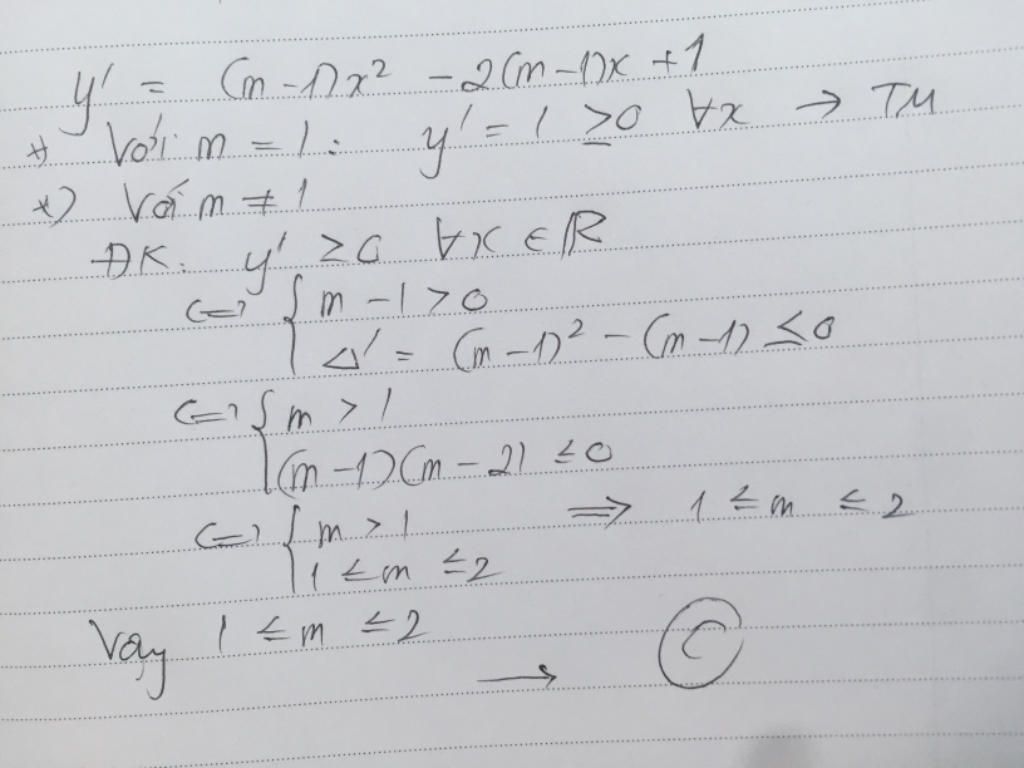 y' = (m-1)x² - 2(m-1)x + 1
+) Với m = 1: y' = 1 ≥ 0 ∀x → TM
+) Với m ≠ 1
ĐK: y' ≥ 0 ∀x ∈ R
<=> { m - 1 > 0
Δ' = (m-1)² - (m-1) ≤ 0
<=> { m > 1
(m-1)(m-2) ≤ 0
<=> { m > 1 => 1 ≤ m ≤ 2
1 ≤ m ≤ 2
Vậy 1 ≤ m ≤ 2
→ C